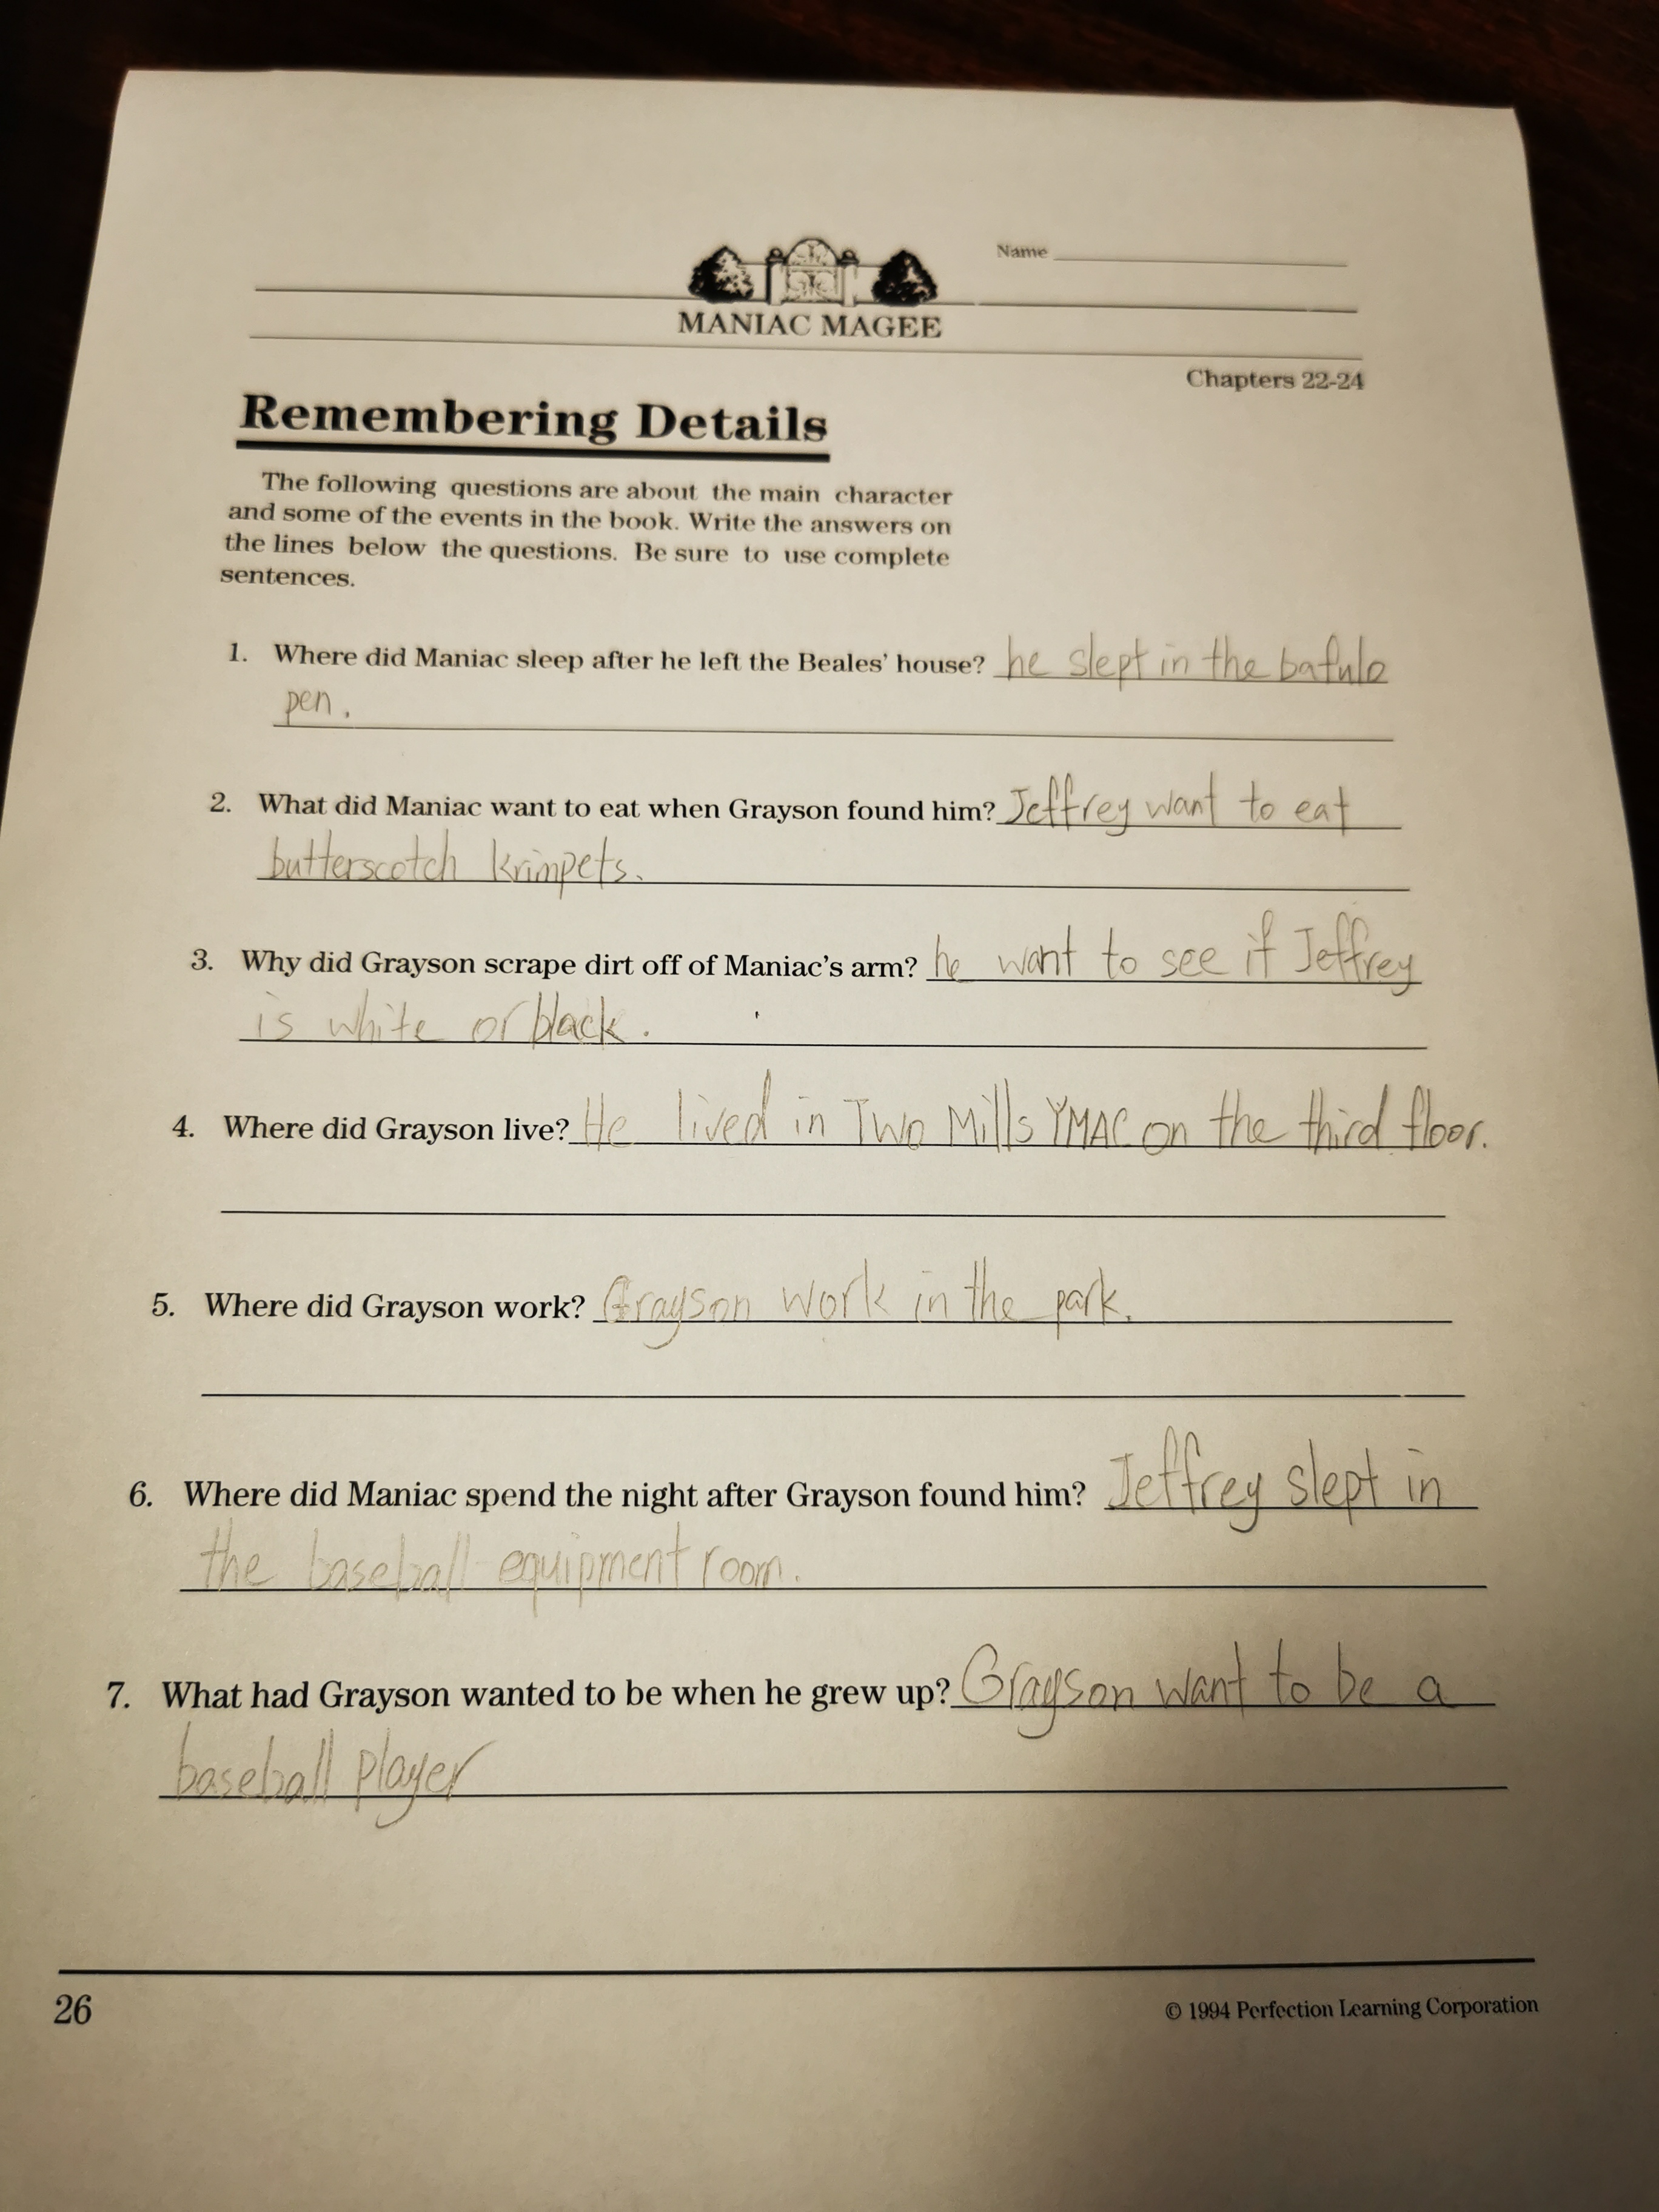 Name
MANIAC MAGEE
Chapters 22-24
Remembering Details
The following questions are about the main character
and some of the events in the book. Write the answers on
the lines below the questions. Be sure to use complete
sentences.
1. Where did Maniac sleep after he left the Beales' house? he slept in the bafulo
pen.
2. What did Maniac want to eat when Grayson found him? Jeffrey want to eat
butterscotch krimpets.
3. Why did Grayson scrape dirt off of Maniac's arm? he want to see if Jeffrey
is white or black.
4. Where did Grayson live? He lived in Two Mills YMAC on the third floor.
5. Where did Grayson work? Grayson work in the park.
6. Where did Maniac spend the night after Grayson found him? Jeffrey slept in
the baseball equipment room.
7. What had Grayson wanted to be when he grew up? Grayson want to be a
baseball player
26
© 1994 Perfection Learning Corporation